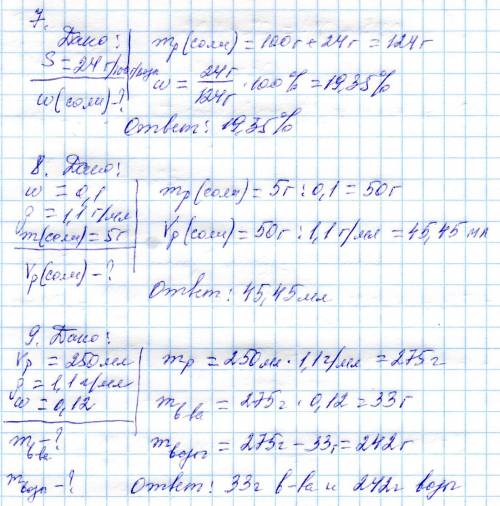 7.
Дано:
S = 24 г/100 г воды
w(соли) - ?
mр(соли) = 100г + 24г = 124г
w = 24г/124г · 100% = 19,35%
Ответ: 19,35%
8. Дано:
w = 0,1
ρ = 1,1 г/мл
m(соли) = 5г
Vр(соли) - ?
mр(соли) = 5г : 0,1 = 50г
Vр(соли) = 50г : 1,1 г/мл = 45,45 мл
Ответ: 45,45 мл
9. Дано:
Vр = 250 мл
ρ = 1,1 г/мл
w = 0,12
mв-ва - ?
mводы - ?
mр = 250мл · 1,1 г/мл = 275г
mв-ва = 275г · 0,12 = 33г
mводы = 275г - 33г = 242г
Ответ: 33г в-ва и 242г воды